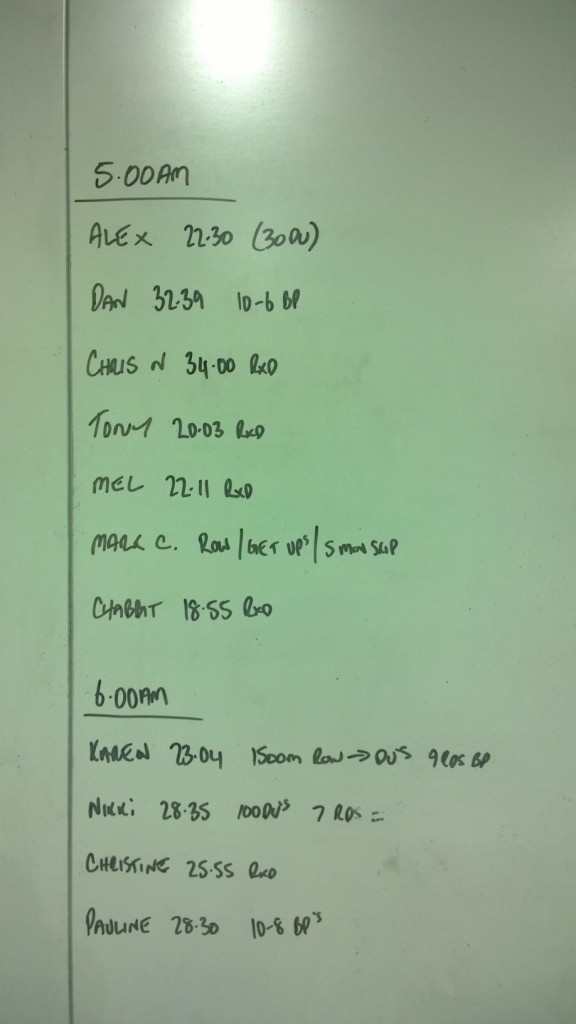 5.00AM
ALEX 22.30 (30DU)
DAN 32.39 10-6 BP
CHRIS N 34.00 RXD
TONY 20.03 RXD
MEL 22.11 RXD
MARK C. ROW/GET UP'S/5 MIN SKIP
CHABBIT 18.55 RXD
6.00AM
KAREN 23.04 1500m ROW→DU'S 9 RDS BP
NIKKi 28.35 100DU'S 7 RDS =
CHRISTINE 25.55 RXD
PAULINE 28.30 10-8 BP'S